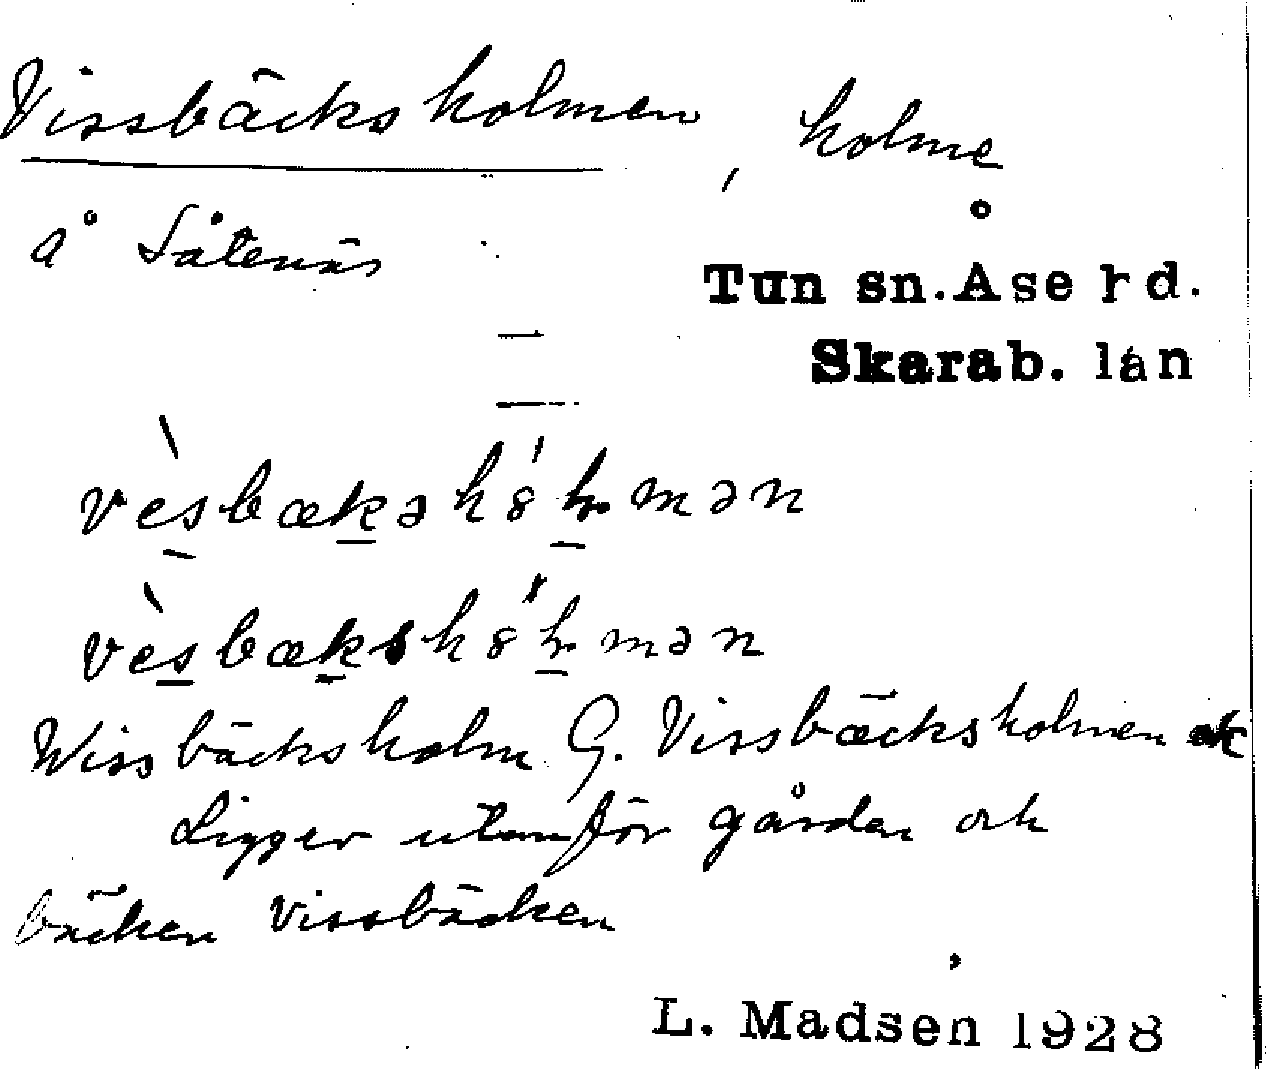 Vissbäcksholmen, holme
å Såtenäs
Tun sn. Åse hd.
Skarab. län
vèsbækəhólmən
vèsbækshólmən
Wissbäcksholm G. Vissbäcksholmen ek
Ligger utanför gården och
bäcken Vissbäcken
L. Madsen 1928